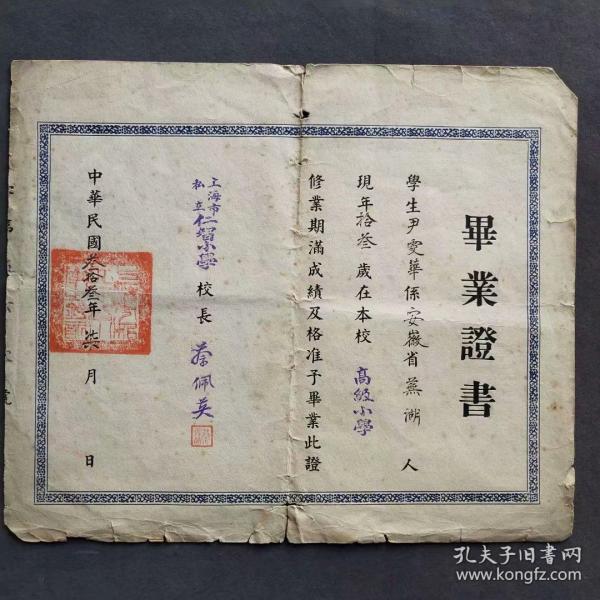 畢業證書
學生尹雯華係安徽省蕪湖人
現年拾叁歲在本校高級小學
修業期滿成績及格准予畢業此證
上海市私立仁智小學校長 蔡佩英
中華民國叁拾叁年柒月 日
孔夫子旧书网
www.kongfz.com